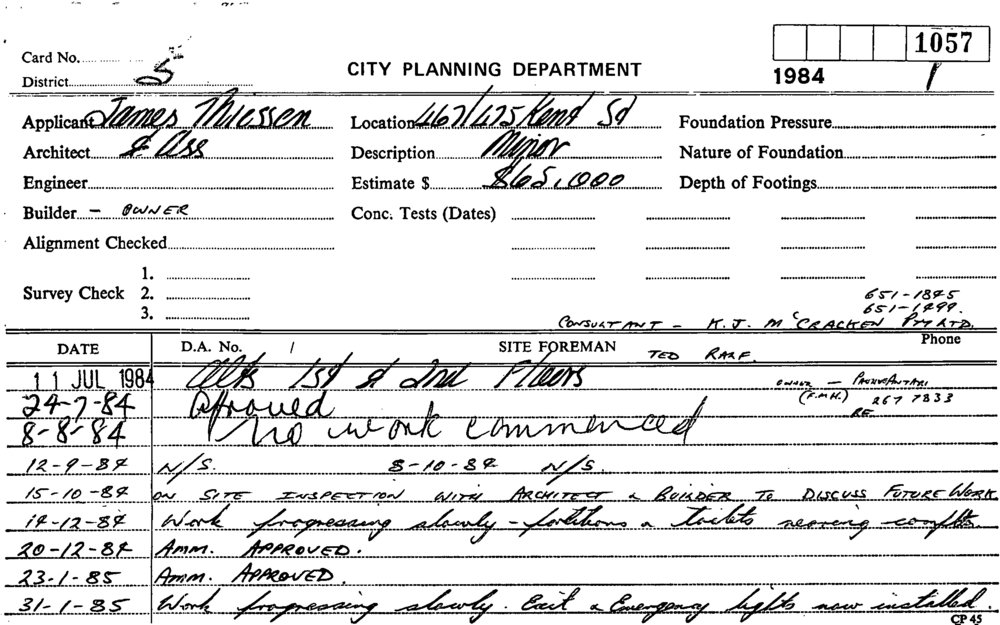 1057
Card No.
CITY PLANNING DEPARTMENT
1984 1
District 5
Applicant James Thiessen Location 467/475 Kent St Foundation Pressure
Architect & Ass Description Minor Nature of Foundation
Engineer Estimate $ $65,000 Depth of Footings
Builder - OWNER Conc. Tests (Dates)
Alignment Checked
1.
Survey Check 2.
3.
651-1845
651-1499.
CONSULTANT - K. J. McCRACKEN PTY LTD.
DATE D.A. No. / SITE FOREMAN TED RALF. Phone
11 JUL 1984 Alts 1st & 2nd Floors OWNER -
24-7-84 Aproved (F.M.H.) 267 7833
8-8-84 No work commenced RE.
12-9-84 N/S. 8-10-84 N/S.
15-10-84 ON SITE INSPECTION WITH ARCHITECT & BUILDER TO DISCUSS FUTURE WORK
14-12-84 Work progressing slowly - partitions & toilets nearing complt.
20-12-84 AMM. APPROVED.
23-1-85 AMM. APPROVED.
31-1-85 Work progressing slowly. Exit & Emergency lights now installed.
CP 45